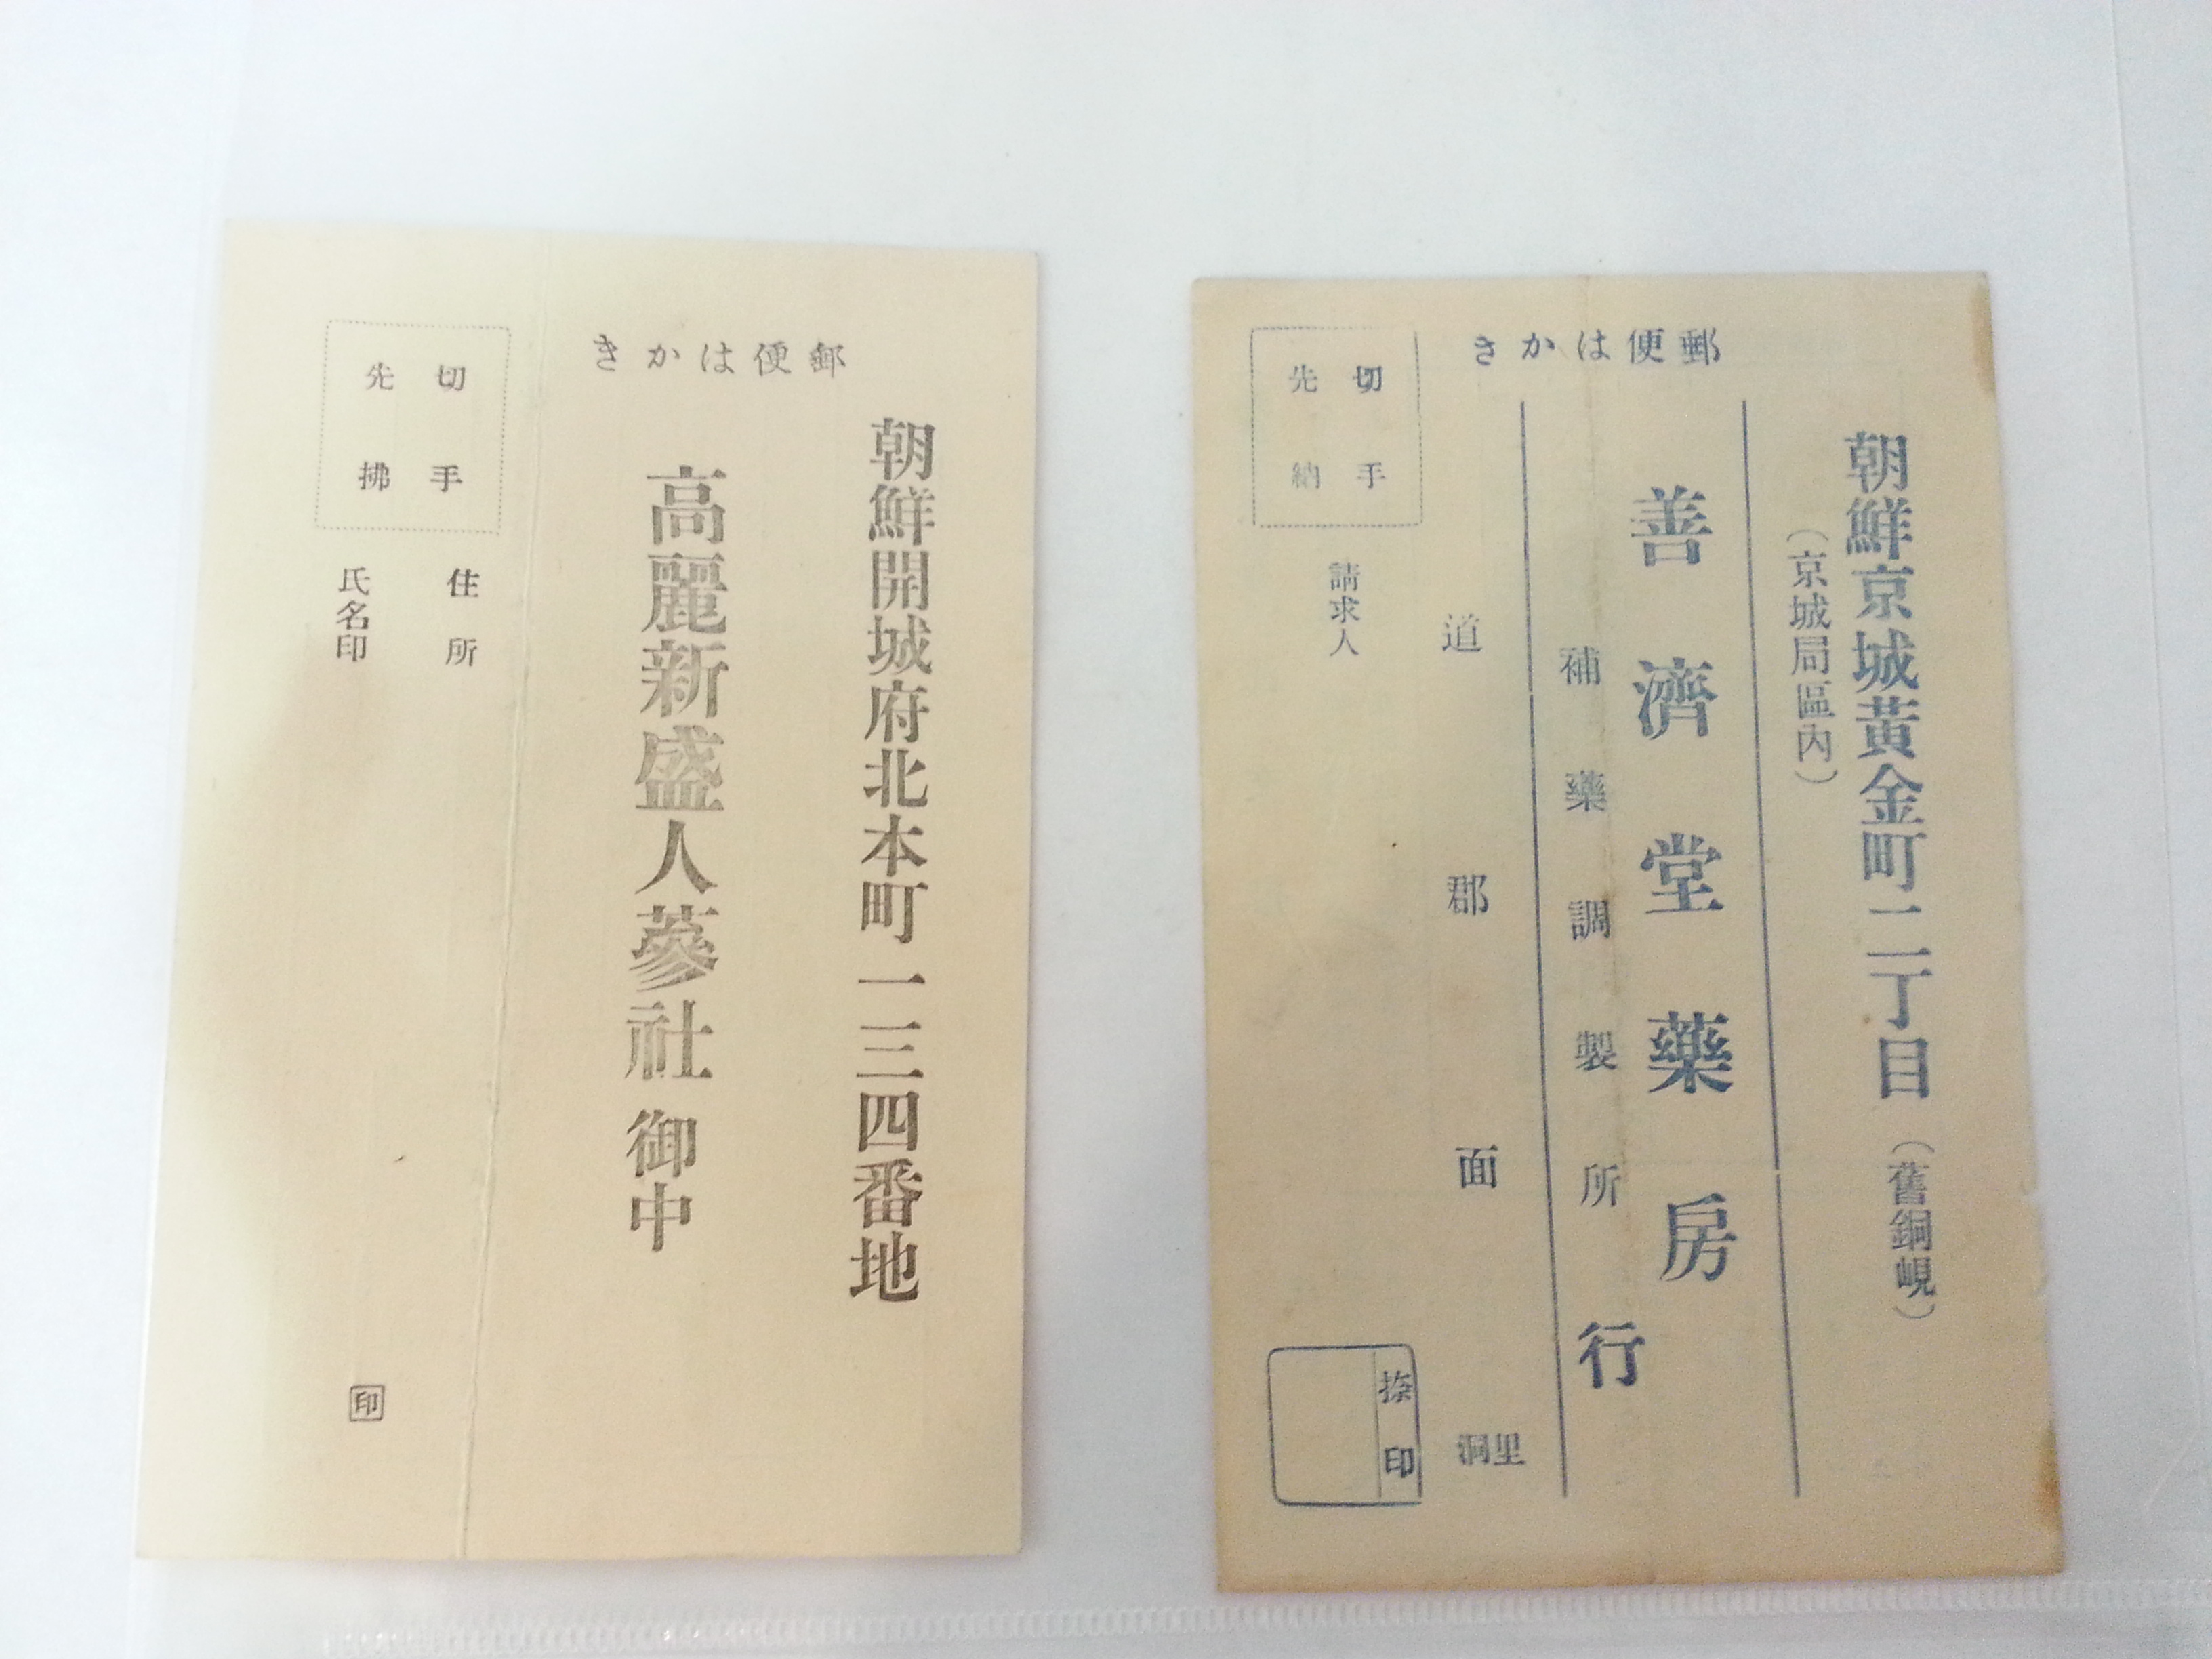 きかは便郵
朝鮮開城府北本町一三四番地
高麗新盛人蔘社 御中
切手
先拂
住所
氏名印
印
きかは便郵
朝鮮京城黃金町二丁目（舊銅峴）
（京城局區內）
善濟堂藥房
補藥調製所 行
道 郡 面 洞里
切手
先納
請求人
捺印